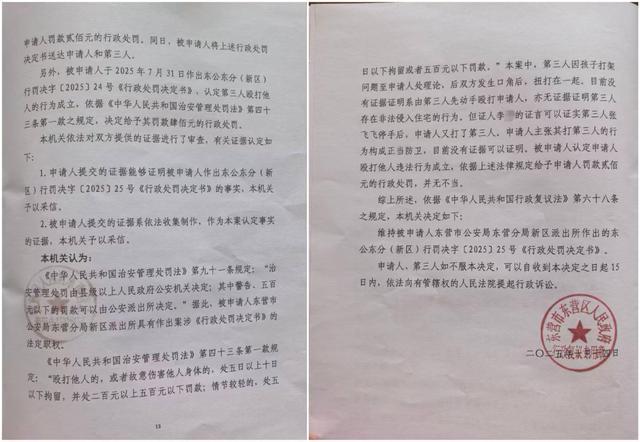 申请人罚款贰佰元的行政处罚。同日，被申请人将上述行政处罚
决定书送达申请人和第三人。
另外，被申请人于2025年7月31日作出东公东分（新区）
行罚决字〔2025〕24号《行政处罚决定书》，认定第三人殴打他
人的行为成立，依据《中华人民共和国治安管理处罚法》第四十
三条第一款之规定，决定给予其罚款肆佰元的行政处罚。
本机关依法对双方提供的证据进行了审查，有关证据认定如
下：
1.申请人提交的证据能够证明被申请人作出东公东分（新
区）行罚决字〔2025〕25号《行政处罚决定书》的事实，本机关
予以采信。
2.被申请人提交的证据系依法收集制作，作为本案认定事实
的证据，本机关予以采信。
本机关认为：
《中华人民共和国治安管理处罚法》第九十一条规定：“治
安管理处罚由县级以上人民政府公安机关决定；其中警告、五百
元以下的罚款可以由公安派出所决定。”据此，被申请人东营市
公安局东营分局新区派出所具有作出案涉《行政处罚决定书》的
法定职权。
《中华人民共和国治安管理处罚法》第四十三条第一款规
定：“殴打他人的，或者故意伤害他人身体的，处五日以上十日
以下拘留，并处二百元以上五百元以下罚款；情节较轻的，处五
13
日以下拘留或者五百元以下罚款。”本案中，第三人因孩子打架
问题至申请人处理论，后双方发生口角后，扭打在一起。目前没
有证据证明系由第三人先动手殴打申请人，亦无证据证明第三人
存在非法侵入住宅的行为。但证人李 的证言可以证实第三人张
飞飞停手后，申请人又打了第三人。申请人主张其打第三人的行
为构成正当防卫，目前没有证据可以证明。被申请人认定申请人
殴打他人违法行为成立，依据上述法律规定给予申请人罚款贰佰
元的行政处罚，并无不当。
综上所述，依据《中华人民共和国行政复议法》第六十八条
之规定，本机关决定如下：
维持被申请人东营市公安局东营分局新区派出所作出的东
公东分（新区）行罚决字〔2025〕25号《行政处罚决定书》。
申请人、第三人如不服本决定，可以自收到本决定之日起15
日内，依法向有管辖权的人民法院提起行政诉讼。
东营市东营区人民政府